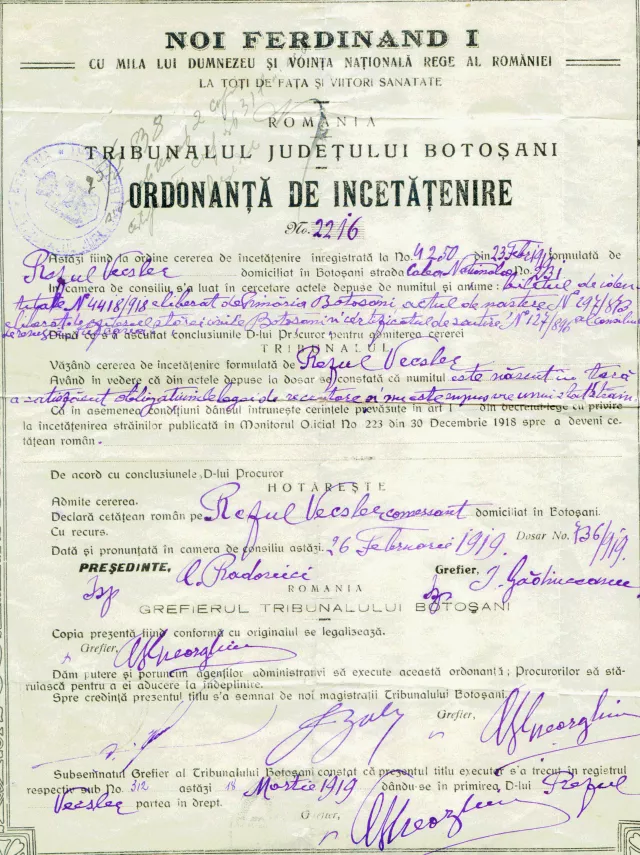 NOI FERDINAND I
CU MILA LUI DUMNEZEU ȘI VOINȚA NAȚIONALĂ REGE AL ROMÂNIEI
LA TOȚI DE FAȚA ȘI VIITORI SANATATE
ROMANIA
TRIBUNALUL JUDEȚULUI BOTOȘANI
ORDONANȚĂ DE INCETĂȚENIRE
No. 2216
Astăzi fiind la ordine cererea de încetățenire înregistrată la No. 4250 din 23 Febr 919 formulată de
Reful Vecsler domiciliat în Botoșani strada Calea Națională No. 231
In camera de consiliu s'a luat în cercetare actele depuse de numitul și anume: biletul de iden
titate N 4418/918 eliberat de Primăria Botoșani, actul de naștere N
eliberat de Botoșani și certificatul de N 127/
După ce s'a ascultat concluziunile D-lui Procuror pentru admiterea cererei
TRIBUNALUL
Văzând cererea de încetățenire formulată de Reful Vecsler
Având în vedere că din actele depuse la dosar se constată că numitul este născut în țară
a satisfăcut obligațiunile legei de recrutare și nu este supus vre unui stat străin
Că în asemenea condițiuni dânsul întrunește cerințele prevăzute în art I din decretul-lege cu privire
la încetățenirea străinilor publicată în Monitorul Oficial No 223 din 30 Decembrie 1918 spre a deveni ce-
tățean român.
De acord cu concluziunele D-lui Procuror
HOTĂREȘTE
Admite cererea.
Declară cetățean român pe Reful Vecsler comersant domiciliat în Botoșani.
Cu recurs.
Dosar No. 736/919.
Dată și pronunțată în camera de consiliu astăzi 26 Februarie 1919.
PREȘEDINTE, Grefier,
ROMANIA
GREFIERUL TRIBUNALULUI BOTOȘANI
Copia prezentă fiind conformă cu originalul se legalizează.
Grefier, Gheorghiu
Dăm putere și poruncim agenților administrativi să execute această ordonanță; Procurorilor să stă-
ruiască pentru a ei aducere la îndeplinire.
Spre credință prezentul titlu s'a semnat de noi magistrații Tribunalului Botoșani
Grefier, Gheorghiu
Subsemnatul Grefier al Tribunalului Botoșani constat că prezentul titlu executor s'a trecut în registrul
respectiv sub No. 312 astăzi 18 Martie 1919 dându-se în primirea D-lui Reful
Vecsler partea în drept.
Grefier, Gheorghiu